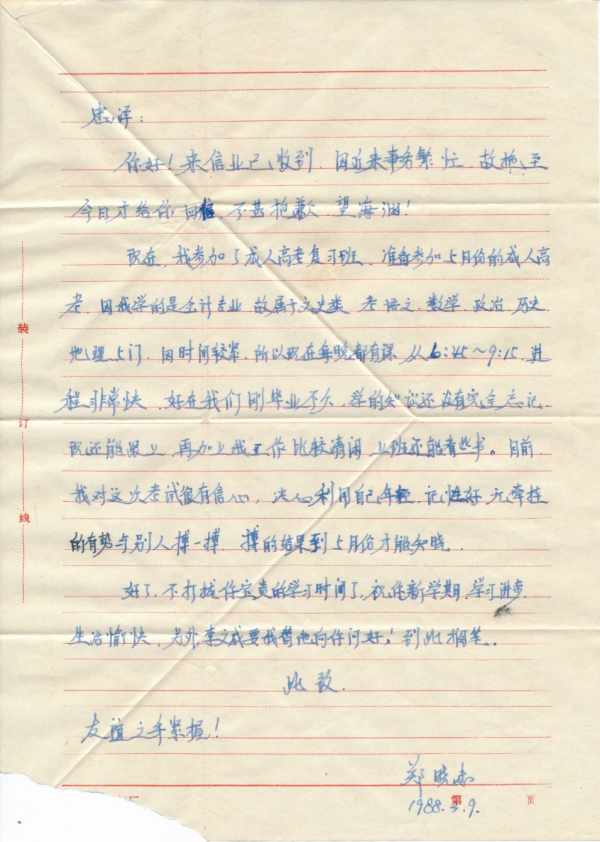 忠泽:
你好!来信业已收到,因近来事务繁忙,故拖至
今日才给你回信,不甚抱歉,望海涵!
现在,我参加了成人高考复习班,准备参加5月份的成人高
考,因我学的是会计专业,故属于文史类,考语文、数学、政治、历史
地理5门,因时间较紧,所以现在每晚都有课,从6:45~9:15,进
程非常快,好在我们刚毕业不久,学的知识还没有完全忘记,
还能跟上,再加上我工作比较清闲,上班还能看些书。目前,
我对这次考试很有信心,决心利用自己年轻,记性好,无牵挂
的有势与别人搏一搏,搏的结果到5月份才能知晓.
好了,不打扰你宝贵的学习时间了,祝你新学期,学习进步,
生活愉快,另外李文成要我替他向你问好!到此搁笔.
此致.
友谊之手紧握!
郑晓
1988. .9.
第 页
装
订
线